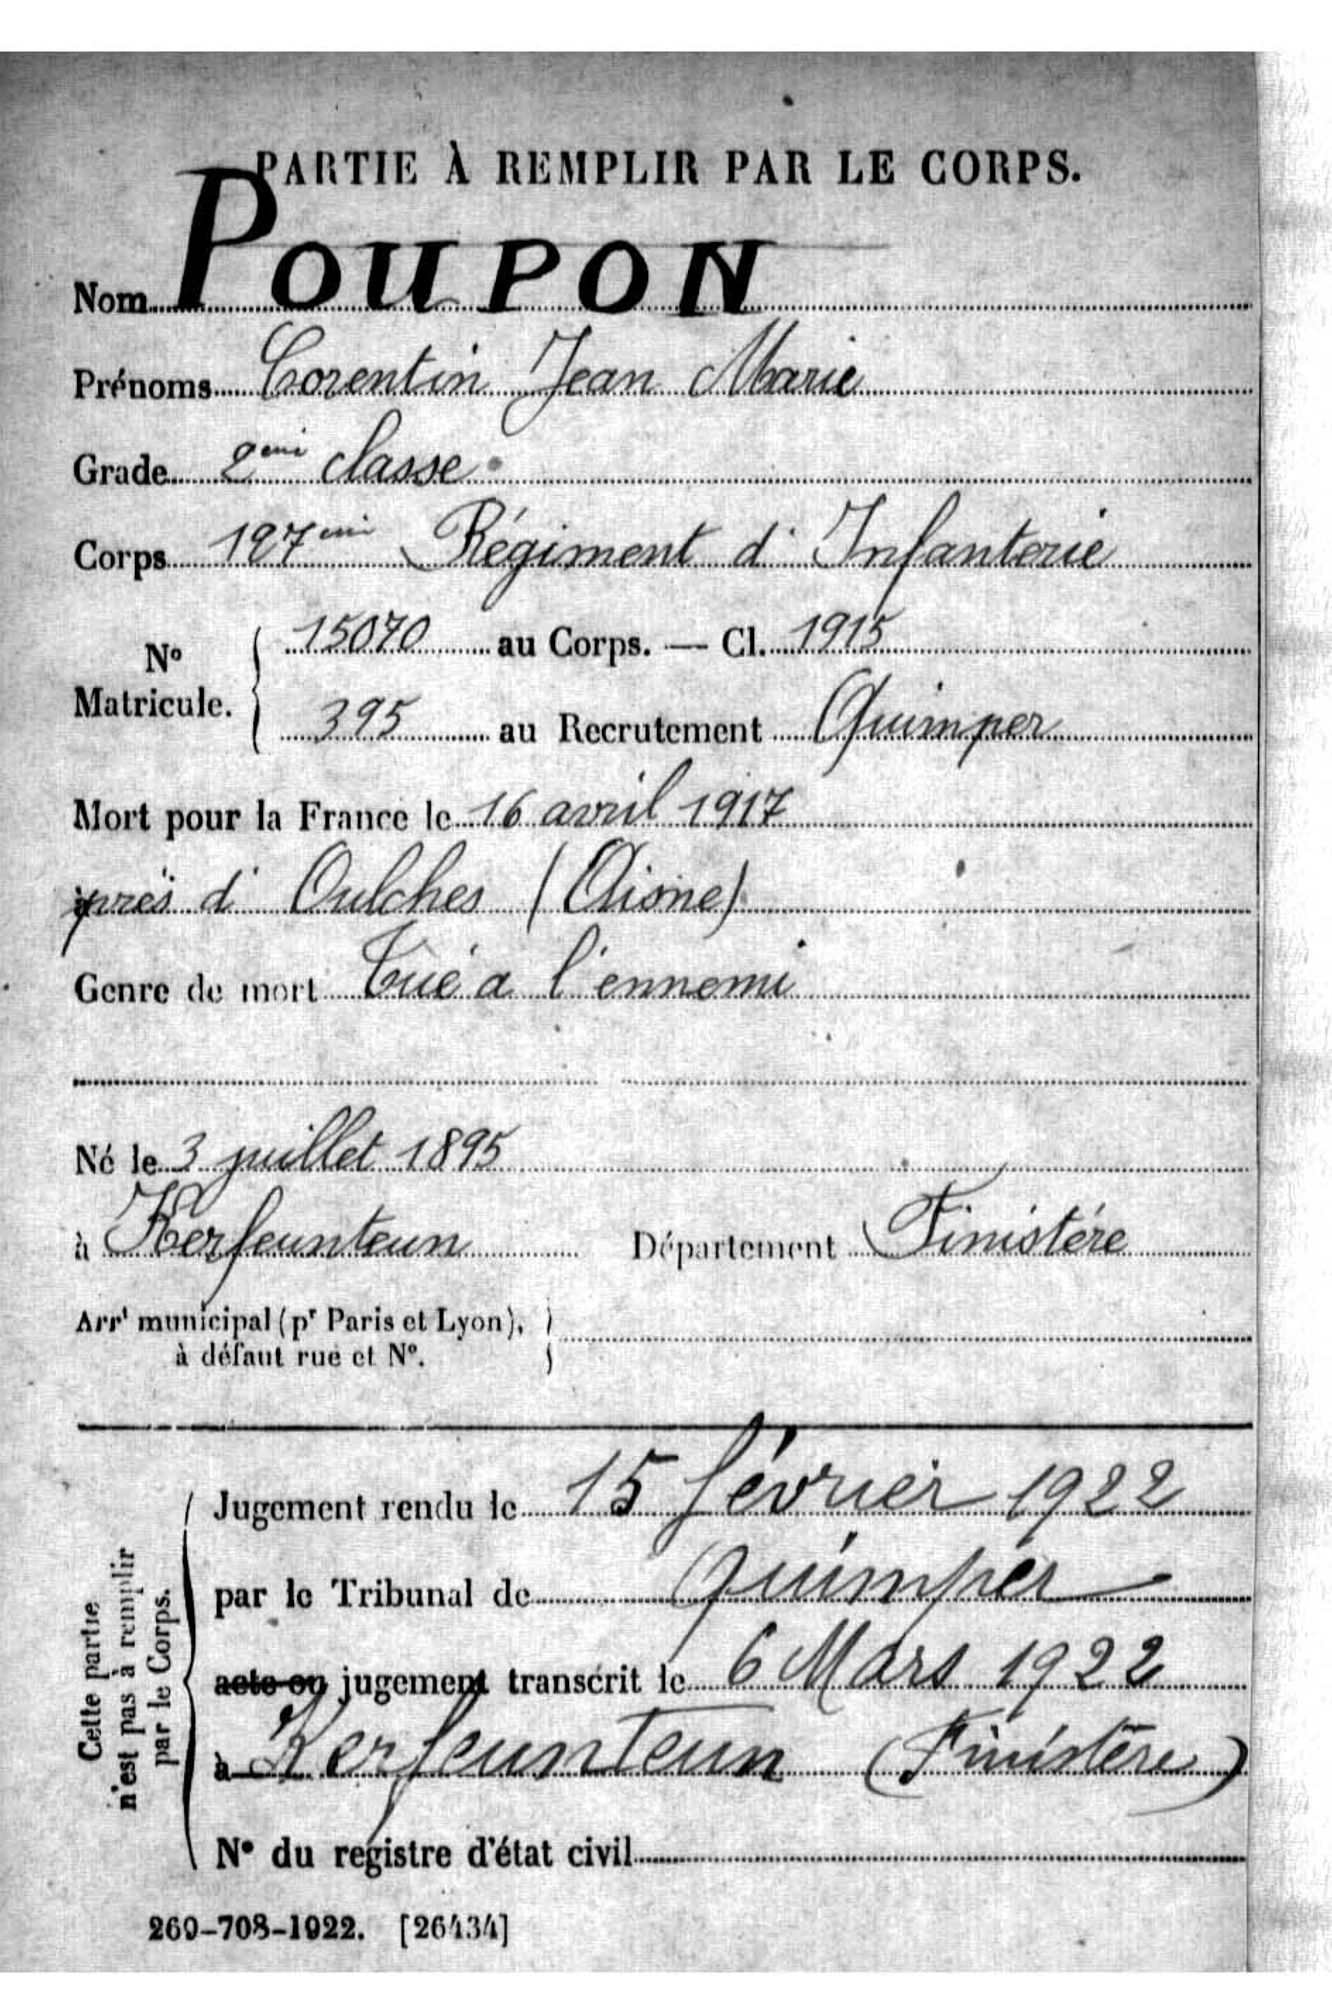 PARTIE À REMPLIR PAR LE CORPS.
Nom POUPON
Prénoms Corentin Jean Marie
Grade 2eme classe
Corps 127eme Régiment d' Infanterie
N° Matricule. { 15070 au Corps. — Cl. 1915
395 au Recrutement Quimper
Mort pour la France le 16 avril 1917
près d' Oulches (Aisne)
Genre de mort Tué a l'ennemi
Né le 3 juillet 1895
à Kerfeunteun Département Finistére
Arrt municipal (pr Paris et Lyon), }
à défaut rue et N°.
Cette partie
n'est pas à remplir
par le Corps.
Jugement rendu le 15 février 1922
par le Tribunal de Quimper
acte ou jugement transcrit le 6 Mars 1922
à Kerfeunteun (Finistère)
N° du registre d'état civil
269-708-1922. [26434]